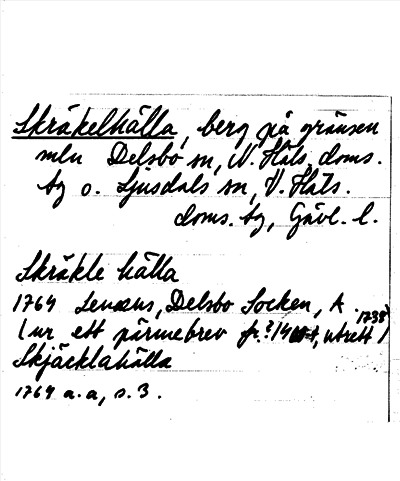 Skräkelhälla, berg på gränsen
mln Delsbo sn, N. Häls. doms.
tg o. Ljusdals sn, V. Häls.
doms. tg, Gävl. l.
Skräkle hälla
1764 Lenæus, Delsbo Socken, A. 1738
(ur ett pärmebrev fr. ? 14, utrett)
Skjäcklahälla
1764 a. a, s. 3.